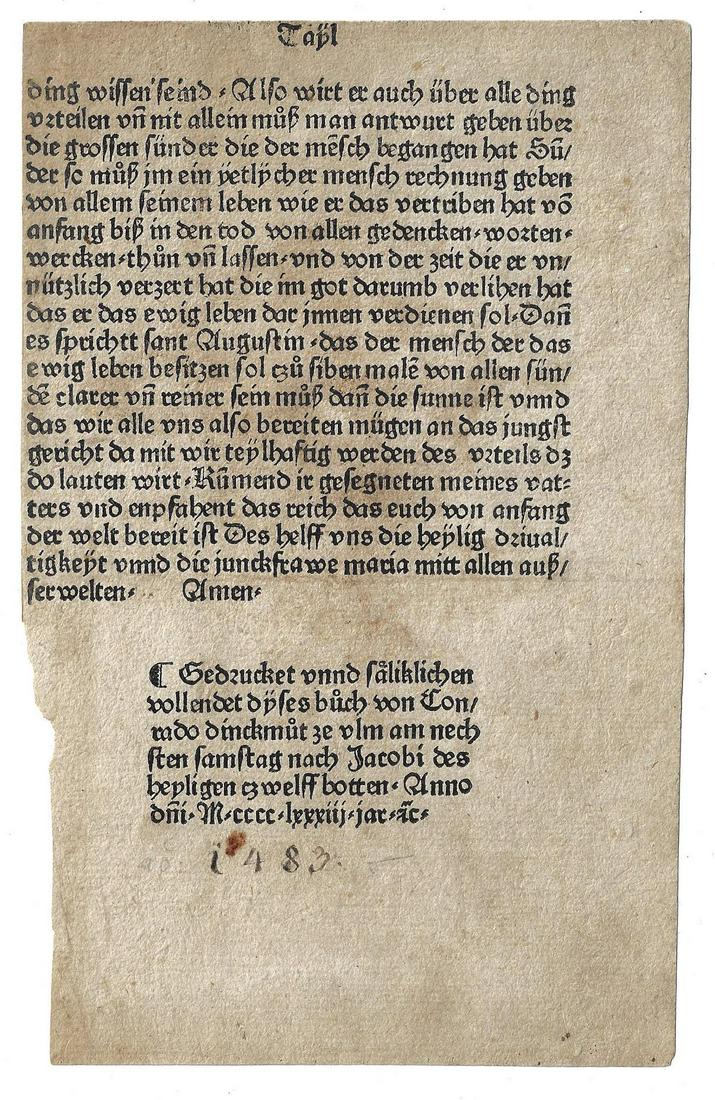 Taÿl
ding wissen seind · Also wirt er auch über alle ding
vrteilen vñ nit allein můß man antwurt geben über
die grossen sünder die der mēsch begangen hat Sü/
der so můß jm ein ÿetlÿcher mensch rechnung geben
von allem seinem leben wie er das vertriben hat võ
anfang biß in den tod von allen gedencken·worten·
wercken·thůn vñ lassen·vnd von der zeit die er vn/
nützlich verzert hat die im got darumb verlihen hat
das er das ewig leben dar jnnen verdienen sol·Dañ
es sprichtt sant Augustin·das der mensch der das
ewig leben besitzen sol czů siben malē von allen sün/
dē clarer vñ reiner sein můß dañ die sunne ist vnnd
das wir alle vns also bereiten mügen an das jungst
gericht da mit wir teÿlhaftig werden des vrteils dz
do lauten wirt·Kūmend ir gesegneten meines vat-
ters vnd enpfahent das reich das euch von anfang
der welt bereit ist Des helff vns die heÿlig driual/
tigkeÿt vnnd die junckfrawe maria mitt allen auß/
serwelten· Amen·
¶ Gedrucket vnnd såliklichen
vollendet dÿses bůch von Con/
rado dinckmůt ze vlm am nech
sten samstag nach Jacobi des
heyligen czwelff botten· Anno
dñi·M·cccc·lxxxiij·jar·ꝛc·
1483·